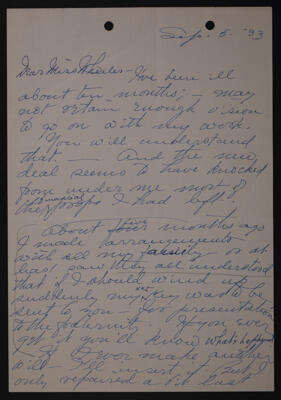 Sep. 5. '33
Dear Miss Wheeler - I've been ill
about ten months; - may
not retain enough vision
to go on with my work.
You will understand
that. - And the new
deal seems to have knocked
from under me most of
the financial props I had left.
About five months ago
I made arrangements
with all my family or at
least saw they all understood
that if I should wind up
suddenly my key was to be
sent to you - for presentation
to the fraternity. If you ever
get it you'll know what's happened
If I ever make another
will - I'll insert it but I
only repaired a bit last